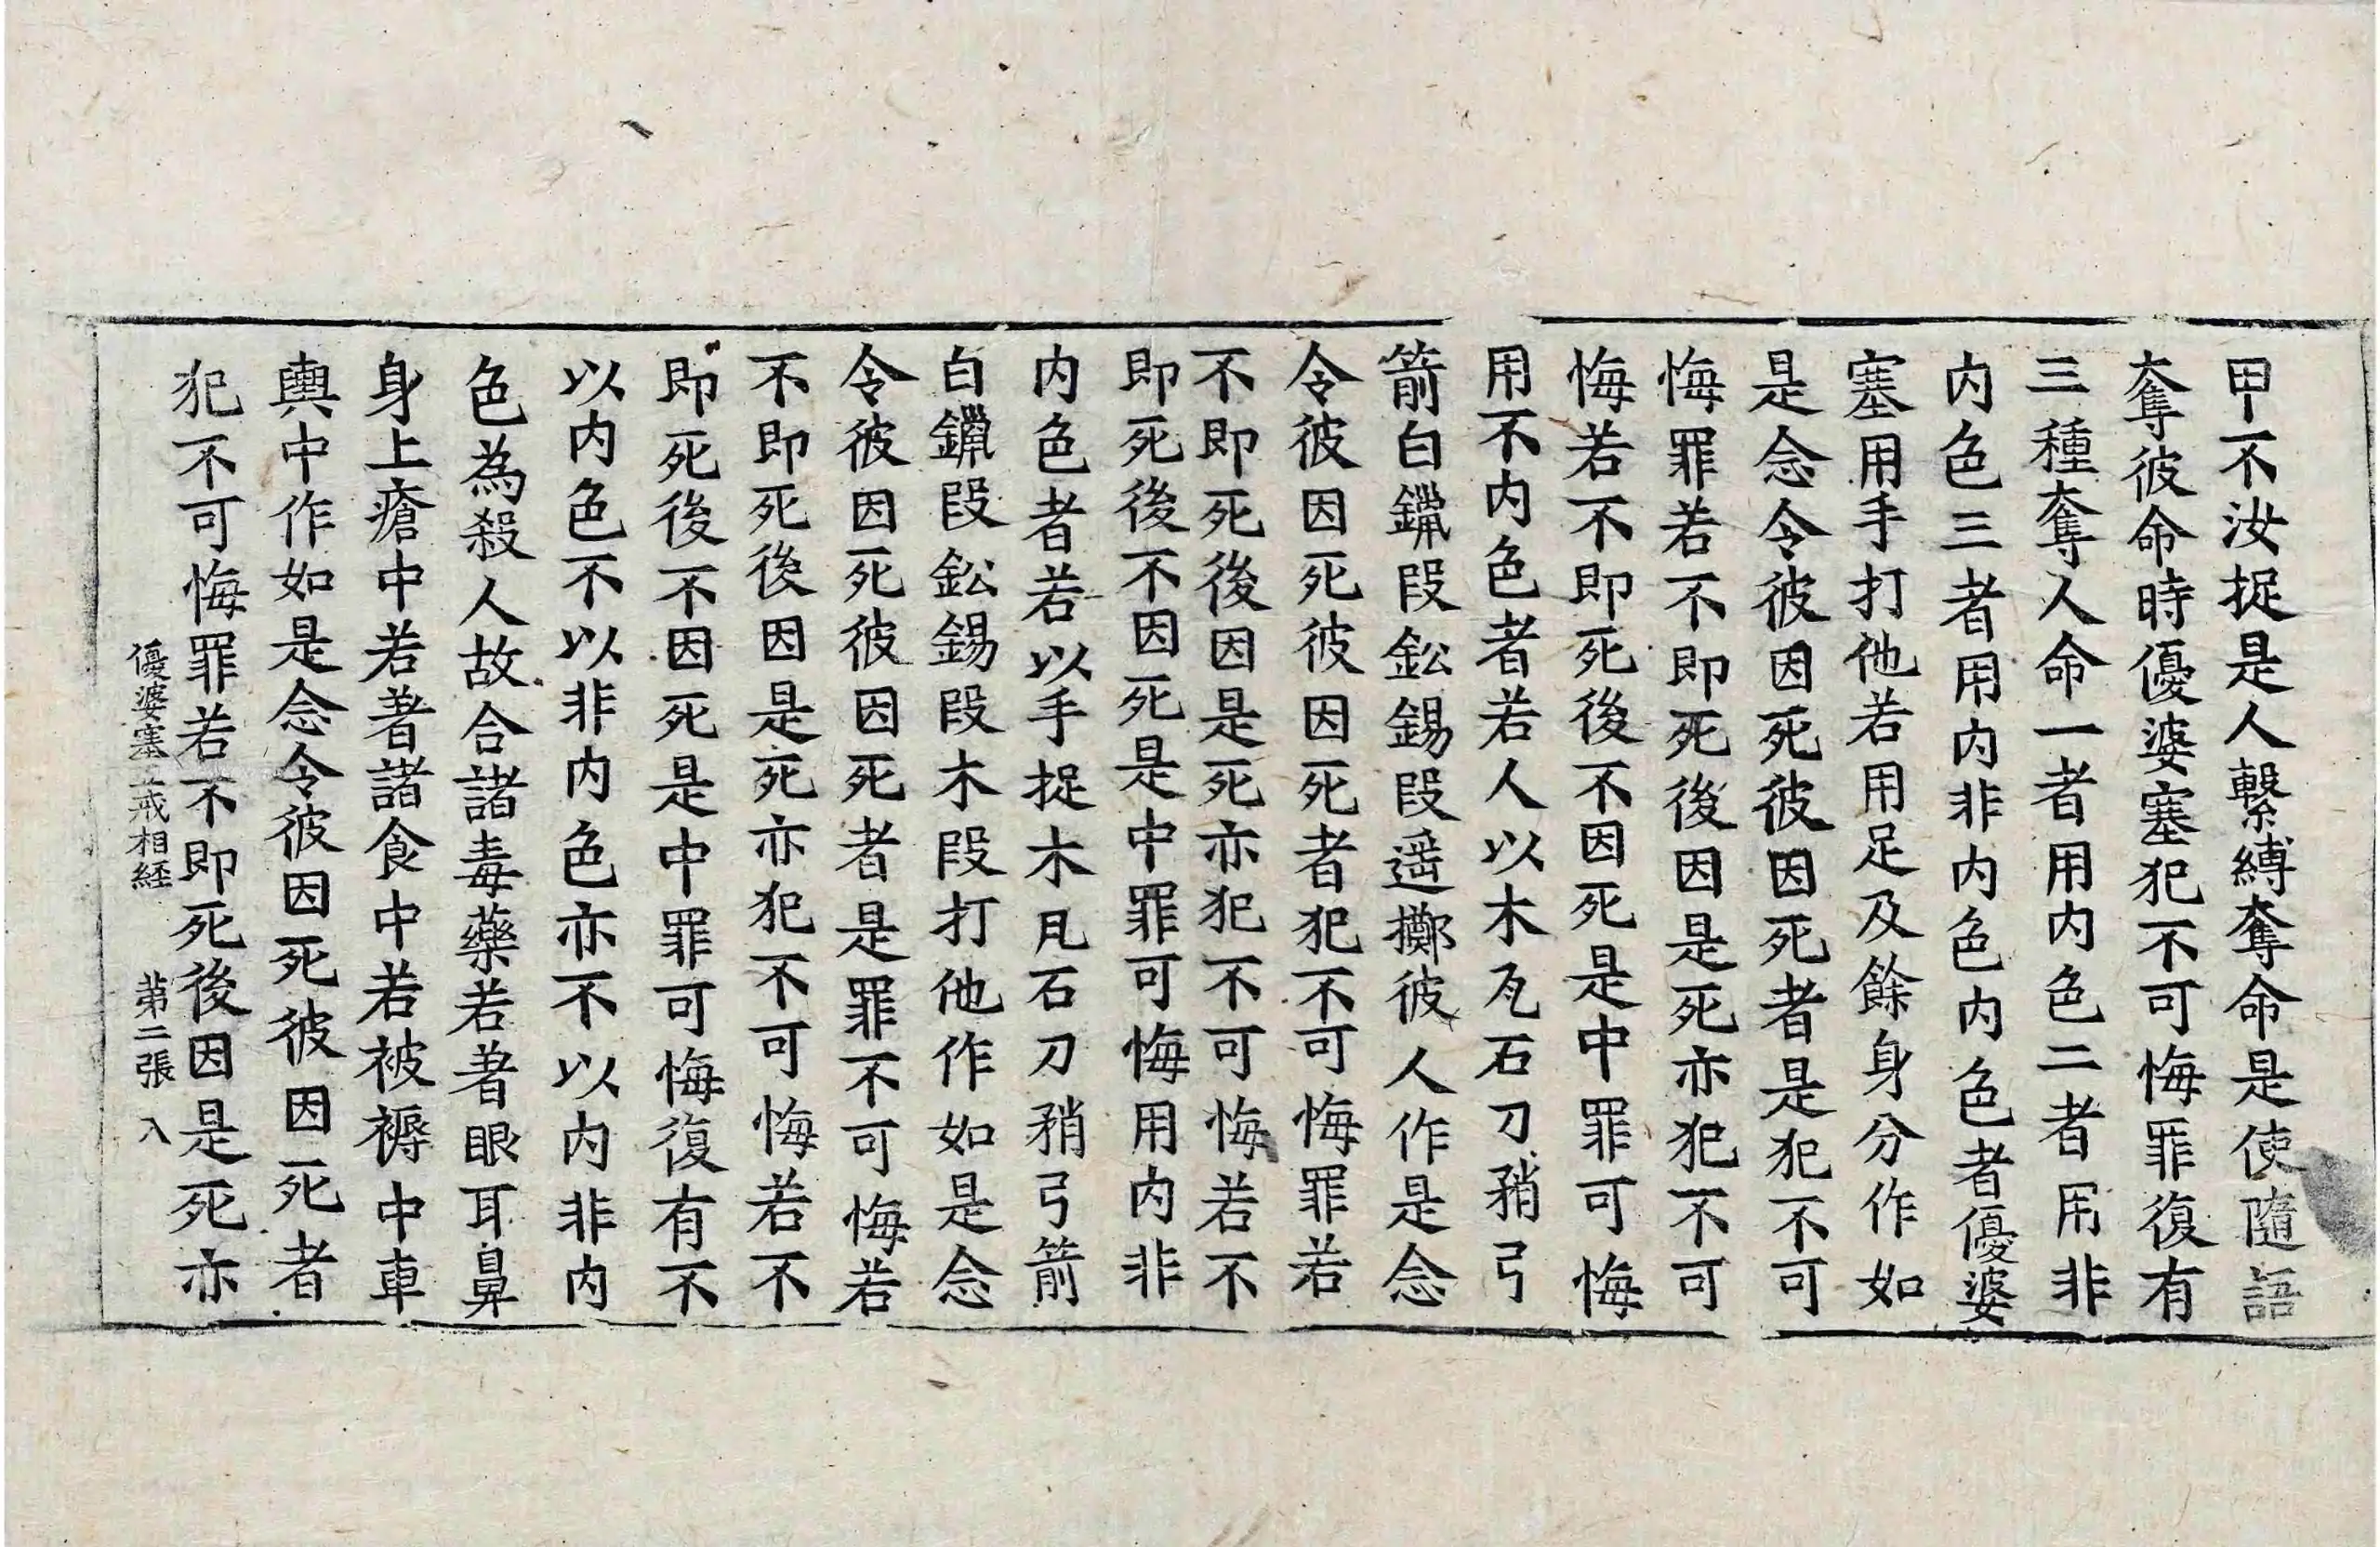 甲不汝捉是人繫縛奪命是使隨語
奪彼命時優婆塞犯不可悔罪復有
三種奪人命一者用内色二者用非
内色三者用内非内色内色者優婆
塞用手打他若用足及餘身分作如
是念令彼因死彼因死者是犯不可
悔罪若不即死後因是死亦犯不可
悔若不即死後不因死是中罪可悔
用不内色者若人以木瓦石刀矟弓
箭白鑞段鈆錫段遥擲彼人作是念
令彼因死彼因死者犯不可悔罪若
不即死後因是死亦犯不可悔若不
即死後不因死是中罪可悔用内非
内色者若以手捉木瓦石刀矟弓箭
白鑞段鈆錫段木段打他作如是念
令彼因死彼因死者是罪不可悔若
不即死後因是死亦犯不可悔若不
即死後不因死是中罪可悔復有不
以内色不以非内色亦不以内非内
色為殺人故合諸毒藥若著眼耳鼻
身上瘡中若著諸食中若被褥中車
輿中作如是念令彼因死彼因死者
犯不可悔罪若不即死後因是死亦
優婆塞五戒相経　第二張　入